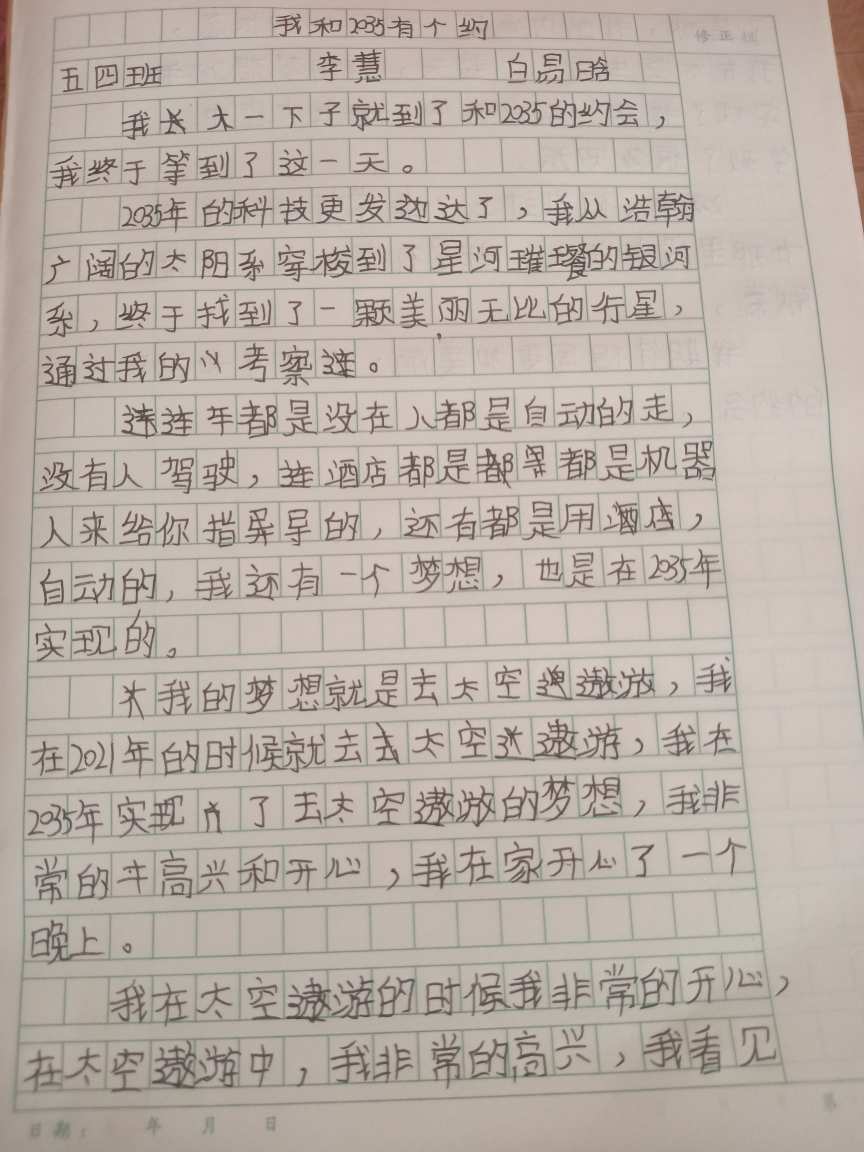 我和2035有个约
修正栏
五四班 李慧 白易晗
我长大一下子就到了和2035的约会，
我终于等到了这一天。
2035年的科技更发达了，我从浩翰
广阔的太阳系穿梭到了星河璀璨的银河
系，终于找到了一颗美丽无比的行星，
通过我的考察连。
连车都是没在人都是自动的走，
没有人驾驶，连酒店都是都是机器
人来给你指导的，还有都是用酒店，
自动的，我还有一个梦想，也是在2035年
实现的。
我的梦想就是去太空遨放，我
在2021年的时候就去去太空遨游，我在
2035年实现了去太空遨放的梦想，我非
常的高兴和开心，我在家开心了一个
晚上。
我在太空遨游的时候我非常的开心，
在太空遨游中，我非常的高兴，我看见
日期： 年 月 日
第